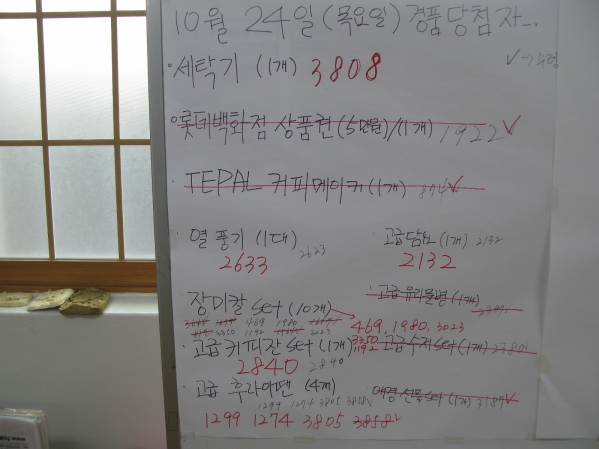 10월 24일 (목요일) 경품당첨자
✓→수령
·세탁기 (1개) 3808
·롯데백화점 상품권 (5만원) (1개) 1922 ✓
·TEPAL 커피메이커 (1개) 874 ✓
열풍기 (1대) 2623
2633
고급담요 (1개) 2132
2132
장미칼 set (10개)
고급유리물병 (1개)
469, 1980, 3023
3350
1192
고급 커피잔 set (1개) 2840
2840
고급수저 set (1개)
고급 후라이팬 (4개)
1299 1274 3805 3858 ✓
애경 선물 set (1개) 3187 ✓
1299 1274 3805 3858 ✓